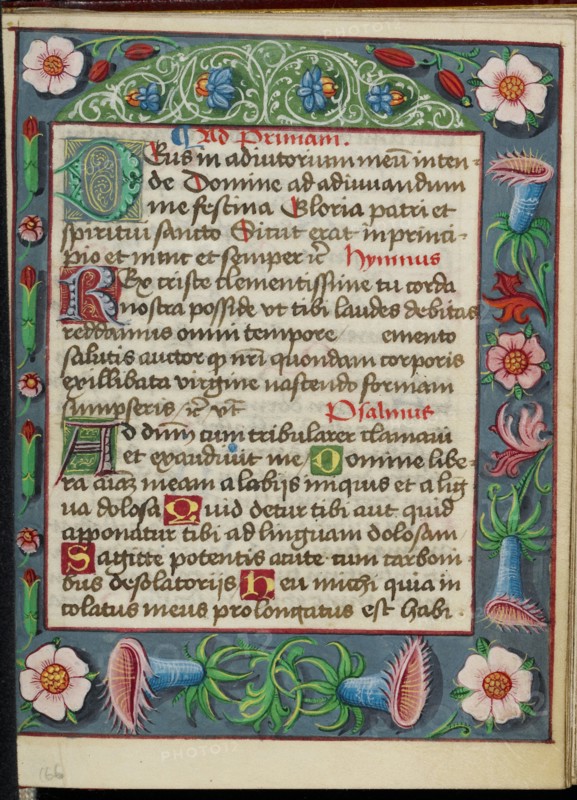 Ad Primam.
Deus in adiutorium meū inten-
de Domine ad adiuuandum
me festina Gloria patri et
spiritui sancto Sicut erat in princi-
pio et nunc et semper ic̄ hymnus
Rex criste clementissime tu corda
nostra posside vt tibi laudes debitas
reddamus omni tempore emento
salutis auctor qͥ nr̄i quondam corporis
ex illibata virgine nascendo formam
sumpseris ic̄ vt̄ Psalmus
Ad dnm̄ cum tribularer clamaui
et exaudiuit me Domine libe-
ra aīaz meam a labijs iniquis et a lig
ua dolosa Quid detur tibi aut quid
apponatur tibi ad linguam dolosam
Sagitte potentis acute cum carboni
bus desolatorijs Heu michi quia in
colatus meus prolongatus est habi
166
PHOTO12